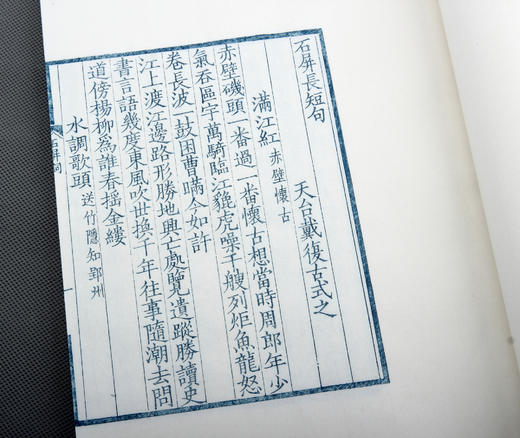 石屏長短句
天台戴復古式之
滿江紅 赤壁懷古
赤壁磯頭一番過一番懷古想當時周郎年少
氣吞區宇萬騎臨江貔虎噪千艘列炬魚龍怒
卷長波一鼓困曹瞞今如許
江上渡江邊路形勝地興亡處覽遺蹤勝讀史
書言語幾度東風吹世換千年往事隨潮去問
道傍楊柳為誰春搖金縷
水調歌頭 送竹隱知郢州
石屏詞